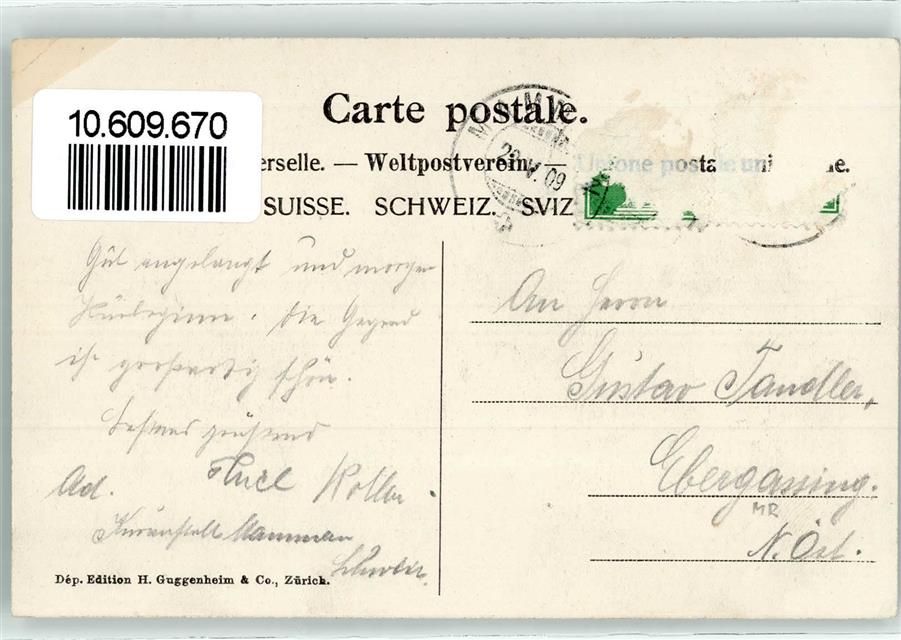 10.609.670
Carte postale.
erselle. — Weltpostverein. — Unione postale uni e.
SUISSE. SCHWEIZ. SVIZ
29.V.09
Gut angelangt und morgen
Kurbeginn. Die Gegend
ist großartig schön.
Bestens grüssend
Ad. Koller
Kuranstalt Mammern
Schweiz.
An Herrn
Gustav Tandler,
Ebergassing.
MR
N. Öst.
Dép. Edition H. Guggenheim & Co., Zürich.